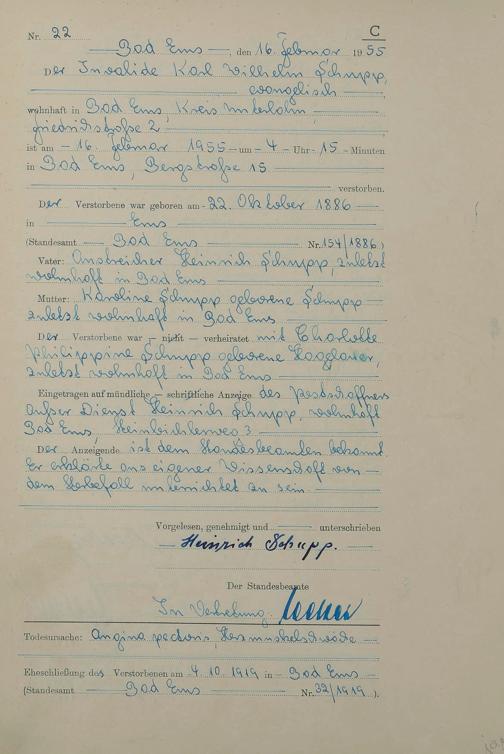 Nr. 22 C
Bad Ems, den 16. Februar 1955
Der Invalide Karl Wilhelm Schupp,
evangelisch
wohnhaft in Bad Ems, Kreis Unterlahn,
Friedrichstraße 2
ist am 16. Februar 1955 um 4 Uhr 15 Minuten
in Bad Ems, Bergstraße 15
verstorben.
Der Verstorbene war geboren am 22. Oktober 1886
in Ems
(Standesamt Bad Ems Nr. 154/1886)
Vater: Anstreicher Heinrich Schupp, zuletzt
wohnhaft in Bad Ems
Mutter: Karoline Schupp geborene Schupp
zuletzt wohnhaft in Bad Ems
Der Verstorbene war – nicht – verheiratet mit Charlotte
Philippine Schupp geborene
zuletzt wohnhaft in Bad Ems
Eingetragen auf mündliche – schriftliche Anzeige des Postschaffners
außer Dienst Heinrich Schupp, wohnhaft
Bad Ems, 3
Der Anzeigende ist dem Standesbeamten bekannt.
Er erklärte aus eigener Wissenschaft von
dem Sterbefall unterrichtet zu sein
Vorgelesen, genehmigt und unterschrieben
Heinrich Schupp.
Der Standesbeamte
In Vertretung
Todesursache: Angina pectoris, Herzmuskelschwäche
Eheschließung des Verstorbenen am 4.10.1919 in Bad Ems
(Standesamt Bad Ems Nr. 32/1919).